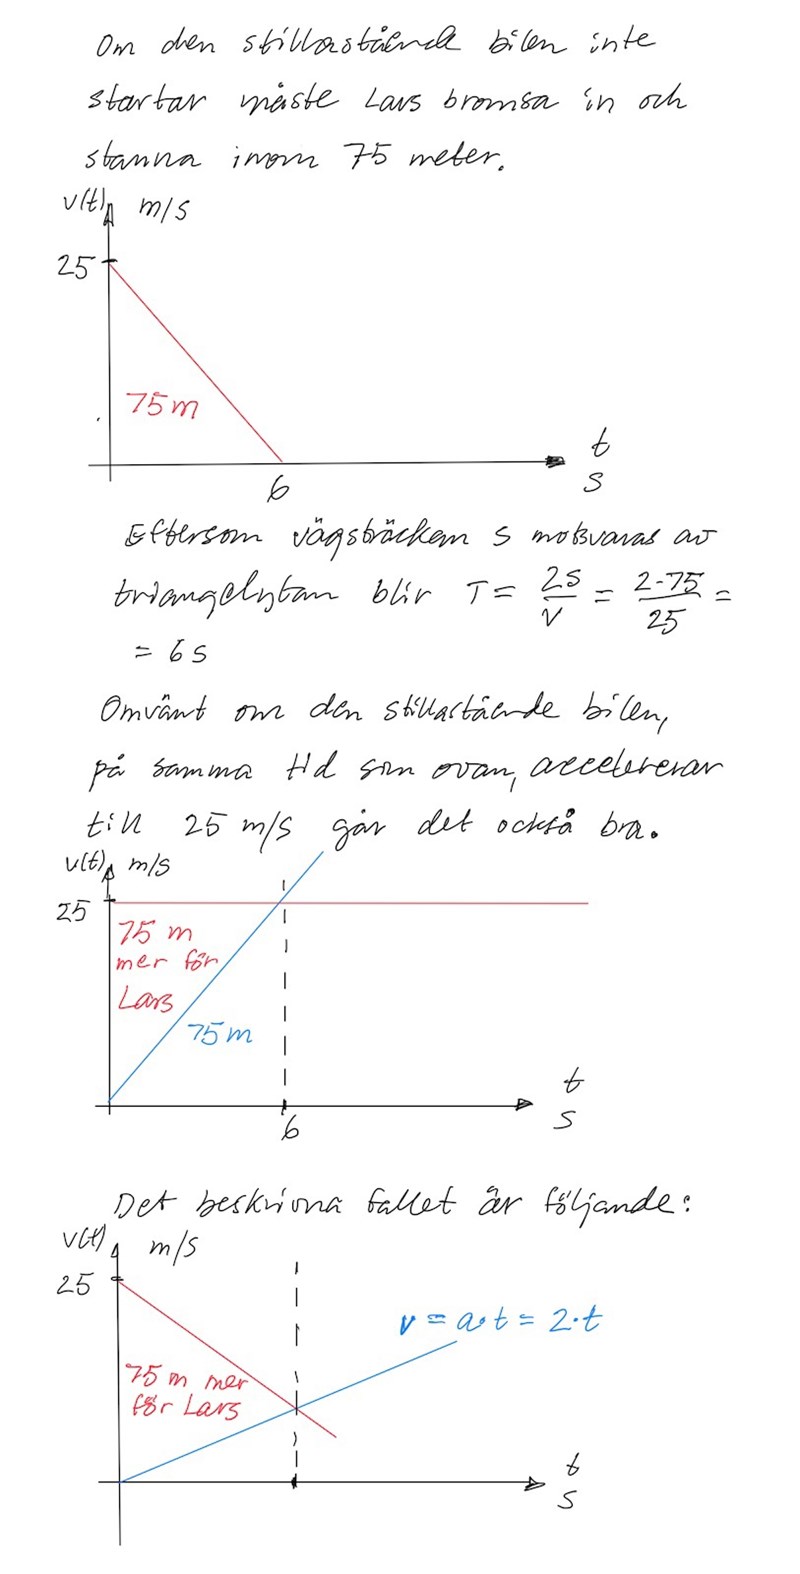 Om den stillastående bilen inte
startar måste Lars bromsa in och
stanna inom 75 meter.
v(t) m/s
25
75 m
t
s
6
Eftersom vägsträckan s motsvaras av
triangelytan blir T = 2s/v = 2·75/25 =
= 6 s
Omvänt om den stillastående bilen,
på samma tid som ovan, accelererar
till 25 m/s går det också bra.
v(t) m/s
25
75 m
mer för
Lars
75 m
t
s
6
Det beskrivna fallet är följande:
v(t) m/s
25
v = a·t = 2·t
75 m mer
för Lars
t
s